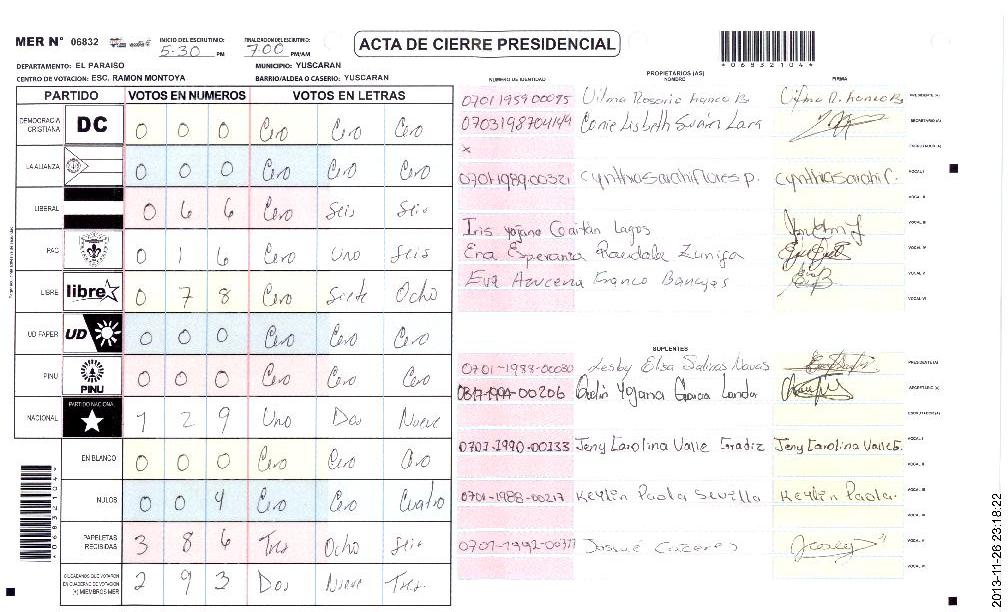 MER N° 06832
INICIO DEL ESCRUTINIO: 5:30 PM
FINALIZACION DEL ESCRUTINIO: 7:00 PM/AM
ACTA DE CIERRE PRESIDENCIAL
*068321044*
DEPARTAMENTO: EL PARAISO MUNICIPIO: YUSCARAN
CENTRO DE VOTACION: ESC. RAMON MONTOYA BARRIO/ALDEA O CASERIO: YUSCARAN
PARTIDO VOTOS EN NUMEROS VOTOS EN LETRAS
DEMOCRACIA CRISTIANA DC 0 0 0 Cero Cero Cero
LA ALIANZA 0 0 0 Cero Cero Cero
LIBERAL 0 6 6 Cero Seis Seis
PAC 0 1 6 Cero Uno Seis
LIBRE libre 0 7 8 Cero Siete Ocho
UD FAPER UD 0 0 0 Cero Cero Cero
PINU PINU 0 0 0 Cero Cero Cero
NACIONAL PARTIDO NACIONAL 1 2 9 Uno Dos Nueve
EN BLANCO 0 0 0 Cero Cero Cero
NULOS 0 0 4 Cero Cero Cuatro
PAPELETAS RECIBIDAS 3 8 6 Tres Ocho Seis
CIUDADANOS QUE VOTARON EN CUADERNO DE VOTACION (+) MIEMBROS MER 2 9 3 Dos Nueve Tres
PROPIETARIOS (AS)
NUMERO DE IDENTIDAD NOMBRE FIRMA
0701195900095 Vilma Rosario Franco B Vilma R. Franco B PRESIDENTE (A)
0703198704144 Lisbeth Lara SECRETARIO (A)
x ESCRUTADOR (A)
0701-1989-00321 Cynthia Sarahi Flores p. Cynthia Sarahi F. VOCAL I
VOCAL II
Iris Yojana Gaitán Lagos VOCAL III
Esperanza Zuniga VOCAL IV
Eva Azucena Franco VOCAL V
VOCAL VI
SUPLENTES
0701-1988-00080 Lesby Elsa Salinas Navas PRESIDENTE (A)
00206 Yojana Garcia SECRETARIO (A)
ESCRUTADOR (A)
0701-1990-00133 Jeny Carolina Valle Gradiz Jeny Carolina Valle G. VOCAL I
VOCAL II
0701-1988-00217 Keylin Paola Sevilla Keylin Paola VOCAL III
VOCAL IV
Josué Caceres VOCAL V
VOCAL VI
*068321044*
2013-11-26 23:18:22